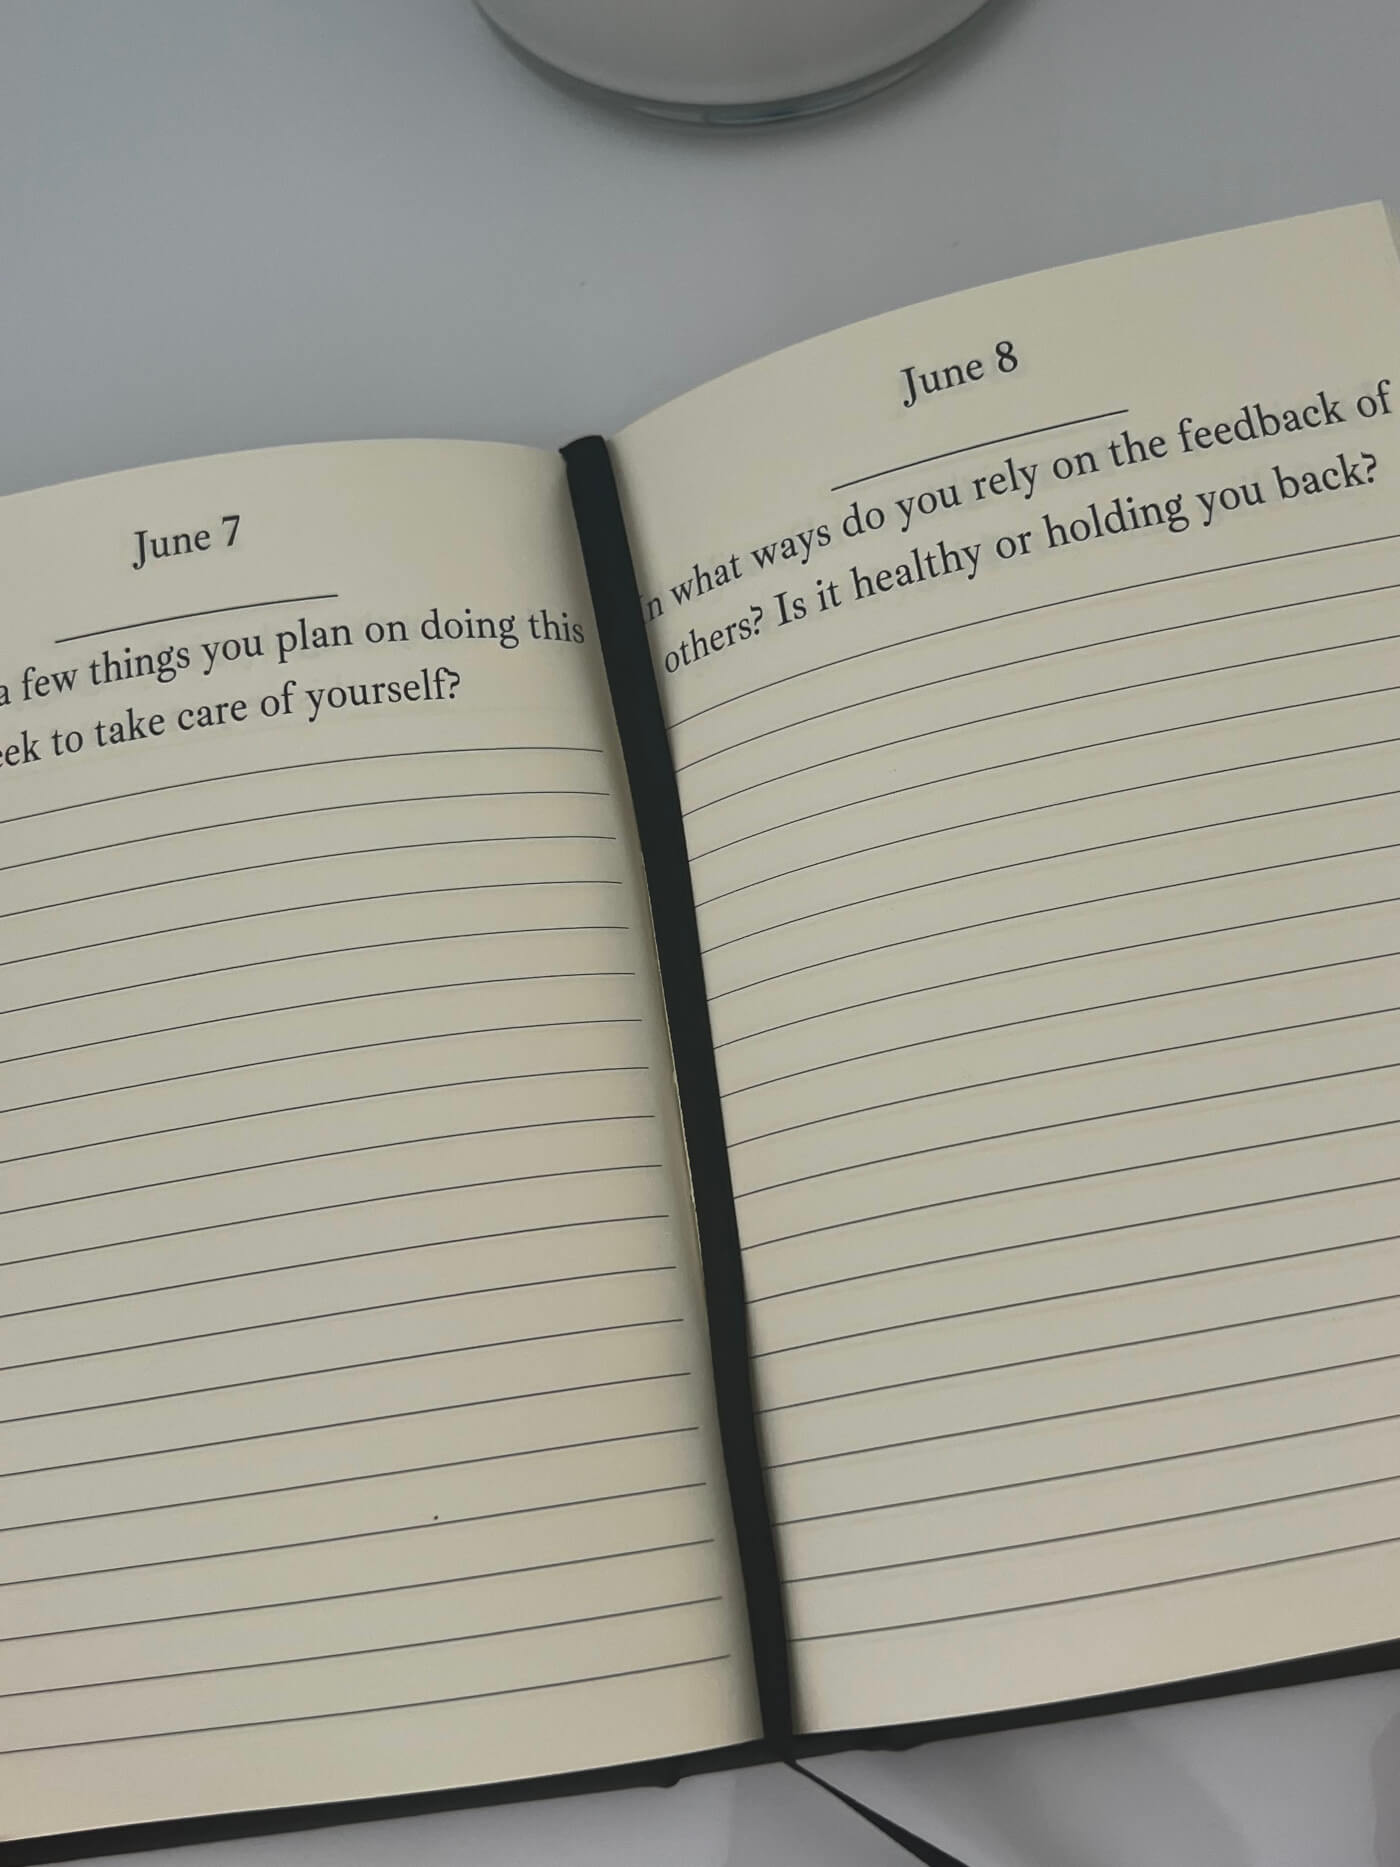 June 7
a few things you plan on doing this
eek to take care of yourself?
June 8
In what ways do you rely on the feedback of
others? Is it healthy or holding you back?